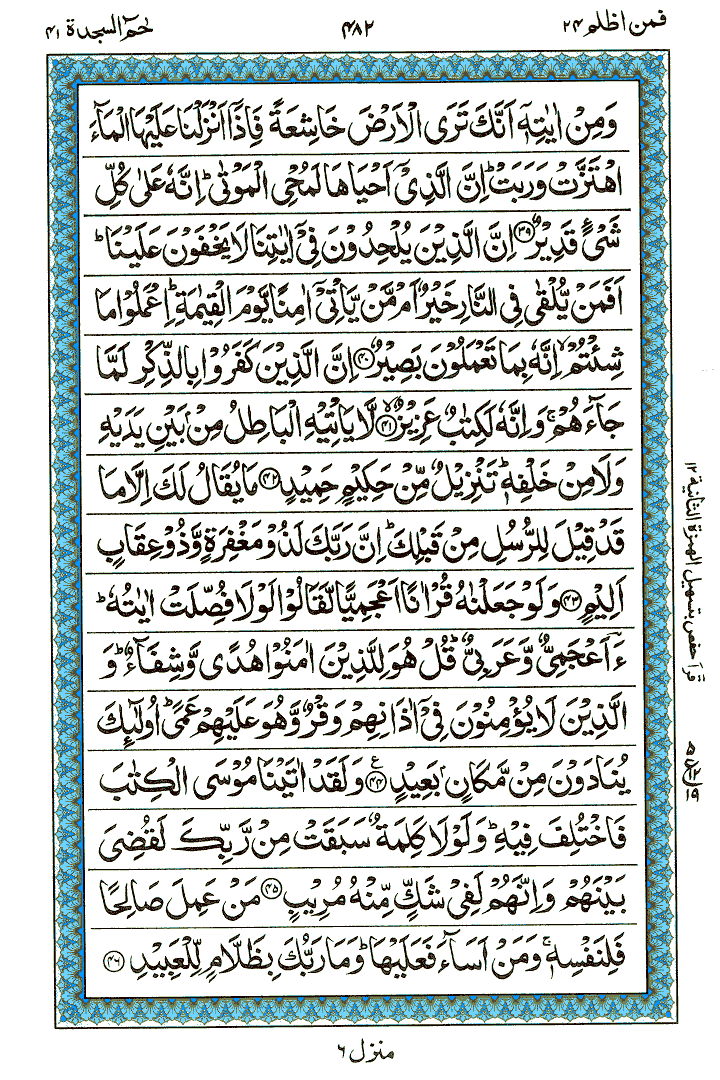 فمن اظلم ۲۴
۴۸۲
حٰمٓ السجدة ۴۱
وَمِنْ اٰيٰتِهٖۤ اَنَّكَ تَرَى الْاَرْضَ خَاشِعَةً فَاِذَاۤ اَنْزَلْنَا عَلَيْهَا الْمَآءَ
اهْتَزَّتْ وَرَبَتْ ؕ اِنَّ الَّذِيْۤ اَحْيَاهَا لَمُحْيِ الْمَوْتٰى ؕ اِنَّهٗ عَلٰى كُلِّ
شَيْءٍ قَدِيْرٌ ﴿۳۹﴾ اِنَّ الَّذِيْنَ يُلْحِدُوْنَ فِيْۤ اٰيٰتِنَا لَا يَخْفَوْنَ عَلَيْنَا ؕ
اَفَمَنْ يُّلْقٰى فِي النَّارِ خَيْرٌ اَمْ مَّنْ يَّاْتِيْۤ اٰمِنًا يَّوْمَ الْقِيٰمَةِ ؕ اِعْمَلُوْا مَا
شِئْتُمْ ۙ اِنَّهٗ بِمَا تَعْمَلُوْنَ بَصِيْرٌ ﴿۴۰﴾ اِنَّ الَّذِيْنَ كَفَرُوْا بِالذِّكْرِ لَمَّا
جَآءَهُمْ ۚ وَاِنَّهٗ لَكِتٰبٌ عَزِيْزٌ ﴿۴۱﴾ ۙ لَّا يَاْتِيْهِ الْبَاطِلُ مِنْۢ بَيْنِ يَدَيْهِ
وَلَا مِنْ خَلْفِهٖ ؕ تَنْزِيْلٌ مِّنْ حَكِيْمٍ حَمِيْدٍ ﴿۴۲﴾ مَا يُقَالُ لَكَ اِلَّا مَا
قَدْ قِيْلَ لِلرُّسُلِ مِنْ قَبْلِكَ ؕ اِنَّ رَبَّكَ لَذُوْ مَغْفِرَةٍ وَّذُوْ عِقَابٍ
اَلِيْمٍ ﴿۴۳﴾ وَلَوْ جَعَلْنٰهُ قُرْاٰنًا اَعْجَمِيًّا لَّقَالُوْا لَوْلَا فُصِّلَتْ اٰيٰتُهٗ ؕ
ءَؔاَعْجَمِيٌّ وَّعَرَبِيٌّ ؕ قُلْ هُوَ لِلَّذِيْنَ اٰمَنُوْا هُدًى وَّشِفَآءٌ ؕ وَ
الَّذِيْنَ لَا يُؤْمِنُوْنَ فِيْۤ اٰذَانِهِمْ وَقْرٌ وَّهُوَ عَلَيْهِمْ عَمًى ؕ اُولٰٓئِكَ
يُنَادَوْنَ مِنْ مَّكَانٍۭ بَعِيْدٍ ﴿۴۴﴾ ع وَلَقَدْ اٰتَيْنَا مُوْسَى الْكِتٰبَ
فَاخْتُلِفَ فِيْهِ ؕ وَلَوْلَا كَلِمَةٌ سَبَقَتْ مِنْ رَّبِّكَ لَقُضِيَ
بَيْنَهُمْ ؕ وَاِنَّهُمْ لَفِيْ شَكٍّ مِّنْهُ مُرِيْبٍ ﴿۴۵﴾ مَنْ عَمِلَ صَالِحًا
فَلِنَفْسِهٖ ۚ وَمَنْ اَسَآءَ فَعَلَيْهَا ؕ وَمَا رَبُّكَ بِظَلَّامٍ لِّلْعَبِيْدِ ﴿۴۶﴾
قرأ حفص بتسهيل الهمزة الثانية ۱۲
منزل ۶